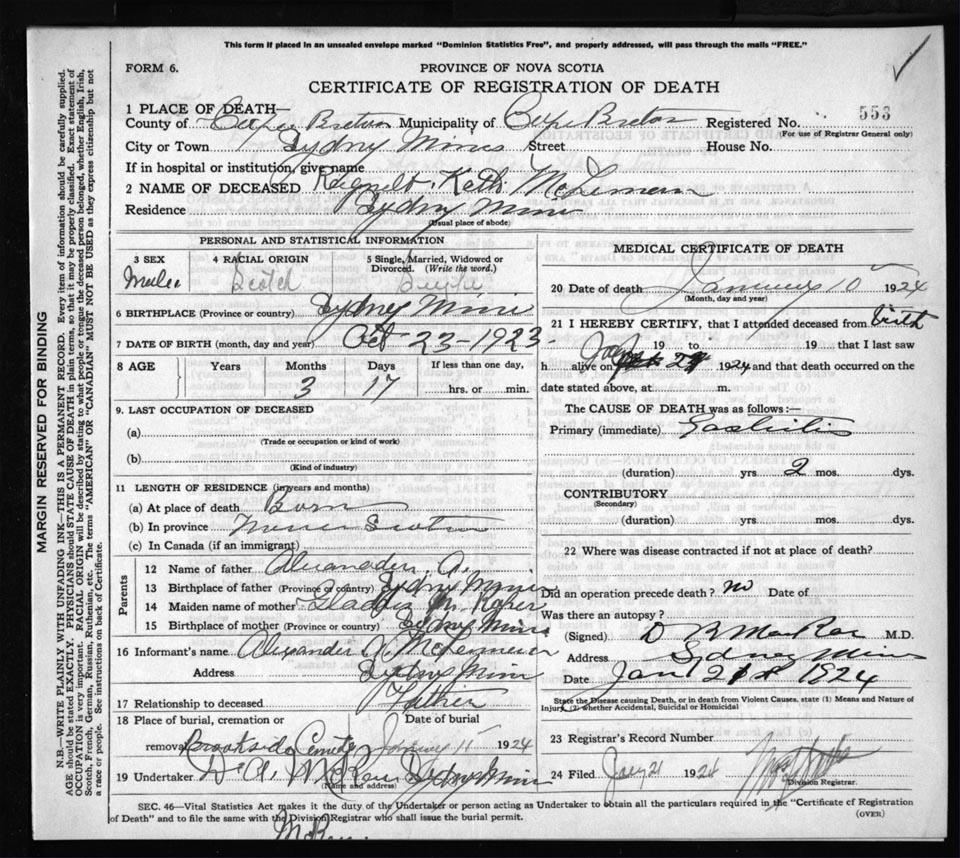 This form if placed in an unsealed envelope marked "Dominion Statistics Free", and properly addressed, will pass through the mails "FREE."
FORM 6.
PROVINCE OF NOVA SCOTIA
CERTIFICATE OF REGISTRATION OF DEATH
MARGIN RESERVED FOR BINDING
N.B.—WRITE PLAINLY WITH UNFADING INK—THIS IS A PERMANENT RECORD. Every item of information should be carefully supplied.
AGE should be stated EXACTLY. PHYSICIANS should STATE CAUSE OF DEATH in plain terms, so that it may be properly classified. Exact statement of
OCCUPATION is very important. RACIAL ORIGIN will be described by stating to what people or tongue the deceased person belonged, whether English, Irish,
Scotch, French, German, Russian, Ruthenian, etc. The terms "AMERICAN" OR "CANADIAN" MUST NOT BE USED as they express citizenship but not
a race or people. See instructions on back of Certificate.
1 PLACE OF DEATH—
County of Cape Breton Municipality of Cape Breton Registered No. 553
(For use of Registrar General only)
City or Town Sydney Mines Street House No.
If in hospital or institution, give name
2 NAME OF DECEASED Kath.
Residence Sydney Mines
(Usual place of abode)
PERSONAL AND STATISTICAL INFORMATION
3 SEX 4 RACIAL ORIGIN 5 Single, Married, Widowed or Divorced. (Write the word.)
Male Scotch Single
6 BIRTHPLACE (Province or country) Sydney Mines
7 DATE OF BIRTH (month, day and year) Oct 23 - 1923 -
8 AGE Years Months Days If less than one day,
3 17 hrs. or min.
9. LAST OCCUPATION OF DECEASED
(a)
(Trade or occupation or kind of work)
(b)
(Kind of industry)
11 LENGTH OF RESIDENCE (in years and months)
(a) At place of death Born
(b) In province Nova Scotia
(c) In Canada (if an immigrant)
Parents
12 Name of father Alexander A.
13 Birthplace of father (Province or country) Sydney Mines
14 Maiden name of mother M.
15 Birthplace of mother (Province or country) Sydney Mines
16 Informant's name Alexander
Address Sydney Mines
17 Relationship to deceased Father
18 Place of burial, cremation or Date of burial
removal Brookside Cemetery January 11 1924
19 Undertaker D. A. Sydney Mines
(Name and address)
MEDICAL CERTIFICATE OF DEATH
20 Date of death January 10 1924
(Month, day and year)
21 I HEREBY CERTIFY, that I attended deceased from birth
19 to 19 that I last saw
h alive on 1924 and that death occurred on the
date stated above, at m.
The CAUSE OF DEATH was as follows:—
Primary (immediate)
(duration) yrs 2 mos. dys.
CONTRIBUTORY
(Secondary)
(duration) yrs mos. dys.
22 Where was disease contracted if not at place of death?
Did an operation precede death? no Date of
Was there an autopsy?
(Signed) D R MacRae M.D.
Address Sydney Mines
Date Jan 21st 1924
State the Disease causing Death, or in death from Violent Causes, state (1) Means and Nature of
Injury, (2) whether Accidental, Suicidal or Homicidal
23 Registrar's Record Number
24 Filed Jany 21 1924
Division Registrar.
SEC. 46—Vital Statistics Act makes it the duty of the Undertaker or person acting as Undertaker to obtain all the particulars required in the "Certificate of Registration
of Death" and to file the same with the Division Registrar who shall issue the burial permit.
(OVER)